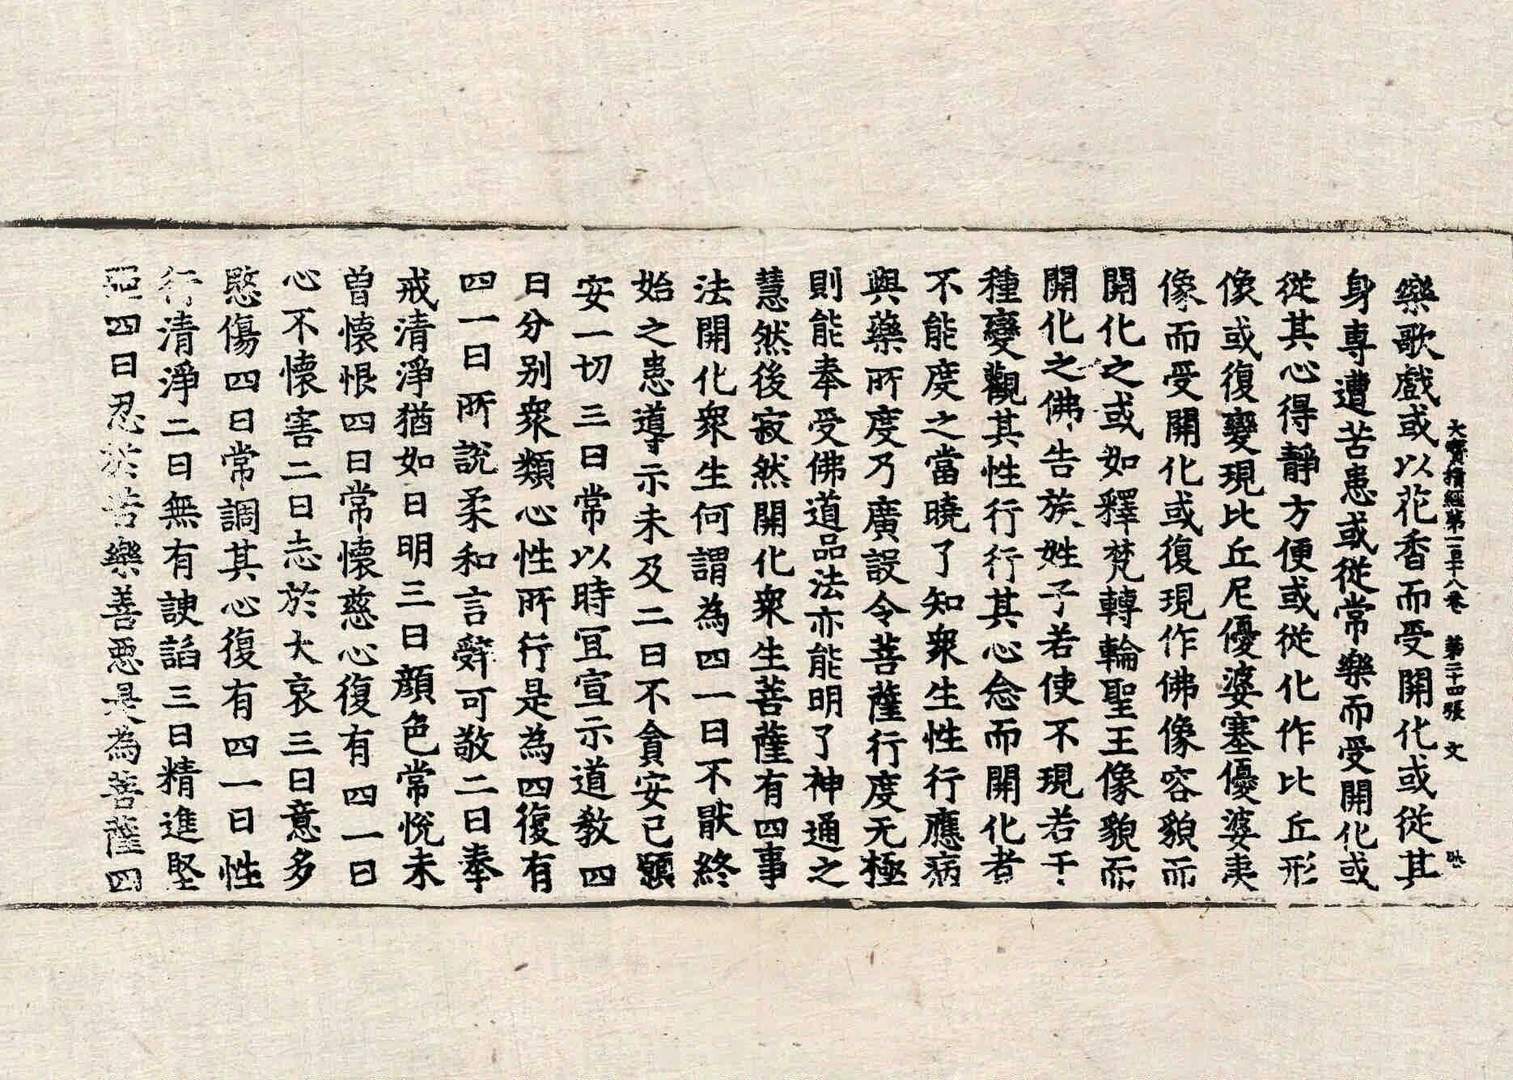 大寶積經第一百十八卷　第二十四張　文
樂歌戲或以花香而受開化或從其
身專遭苦患或從常樂而受開化或
從其心得靜方便或從化作比丘形
像或復變現比丘尼優婆塞優婆夷
像而受開化或復現作佛像容貌而
開化之或如釋梵轉輪聖王像貌而
開化之佛告族姓子若使不現若干
種變觀其性行行其心念而開化者
不能度之當曉了知衆生性行應病
與藥所度乃廣設令菩薩行度无極
則能奉受佛道品法亦能明了神通之
慧然後寂然開化衆生菩薩有四事
法開化衆生何謂為四一曰不厭終
始之患導示未及二曰不貪安己願
安一切三曰常以時宜宣示道教四
曰分別衆類心性所行是為四復有
四一曰所說柔和言辭可敬二曰奉
戒清淨猶如日明三曰顔色常悅未
曽懷恨四曰常懷慈心復有四一曰
心不懷害二曰志於大哀三曰意多
愍傷四曰常調其心復有四一曰性
行清淨二曰無有諛諂三曰精進堅
强四曰忍於苦樂善惡是為菩薩四